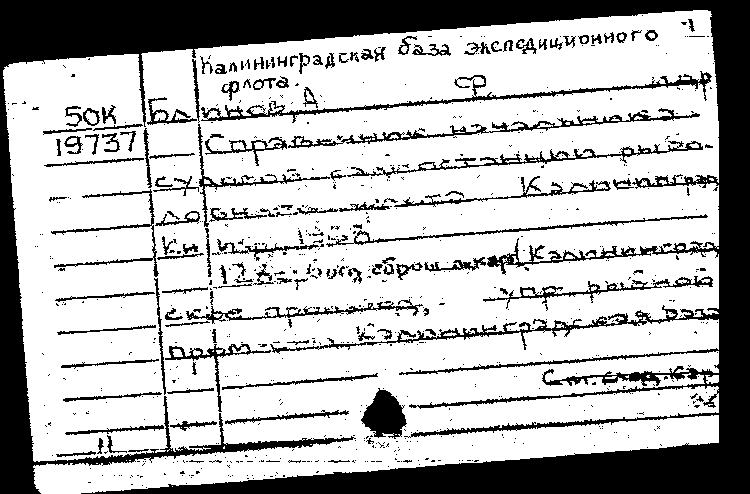 Калининградская база экспедиционного
флота.
50К Блинов, А Ф и др
19737 Справочник начальника
судовой радиостанции рыбо-
ловного флота Калининград
Кн изд, 1958
128с; сброш Калининград
ское производ. упр рыбной
пром-сти, Калининградская база
См. след. кар